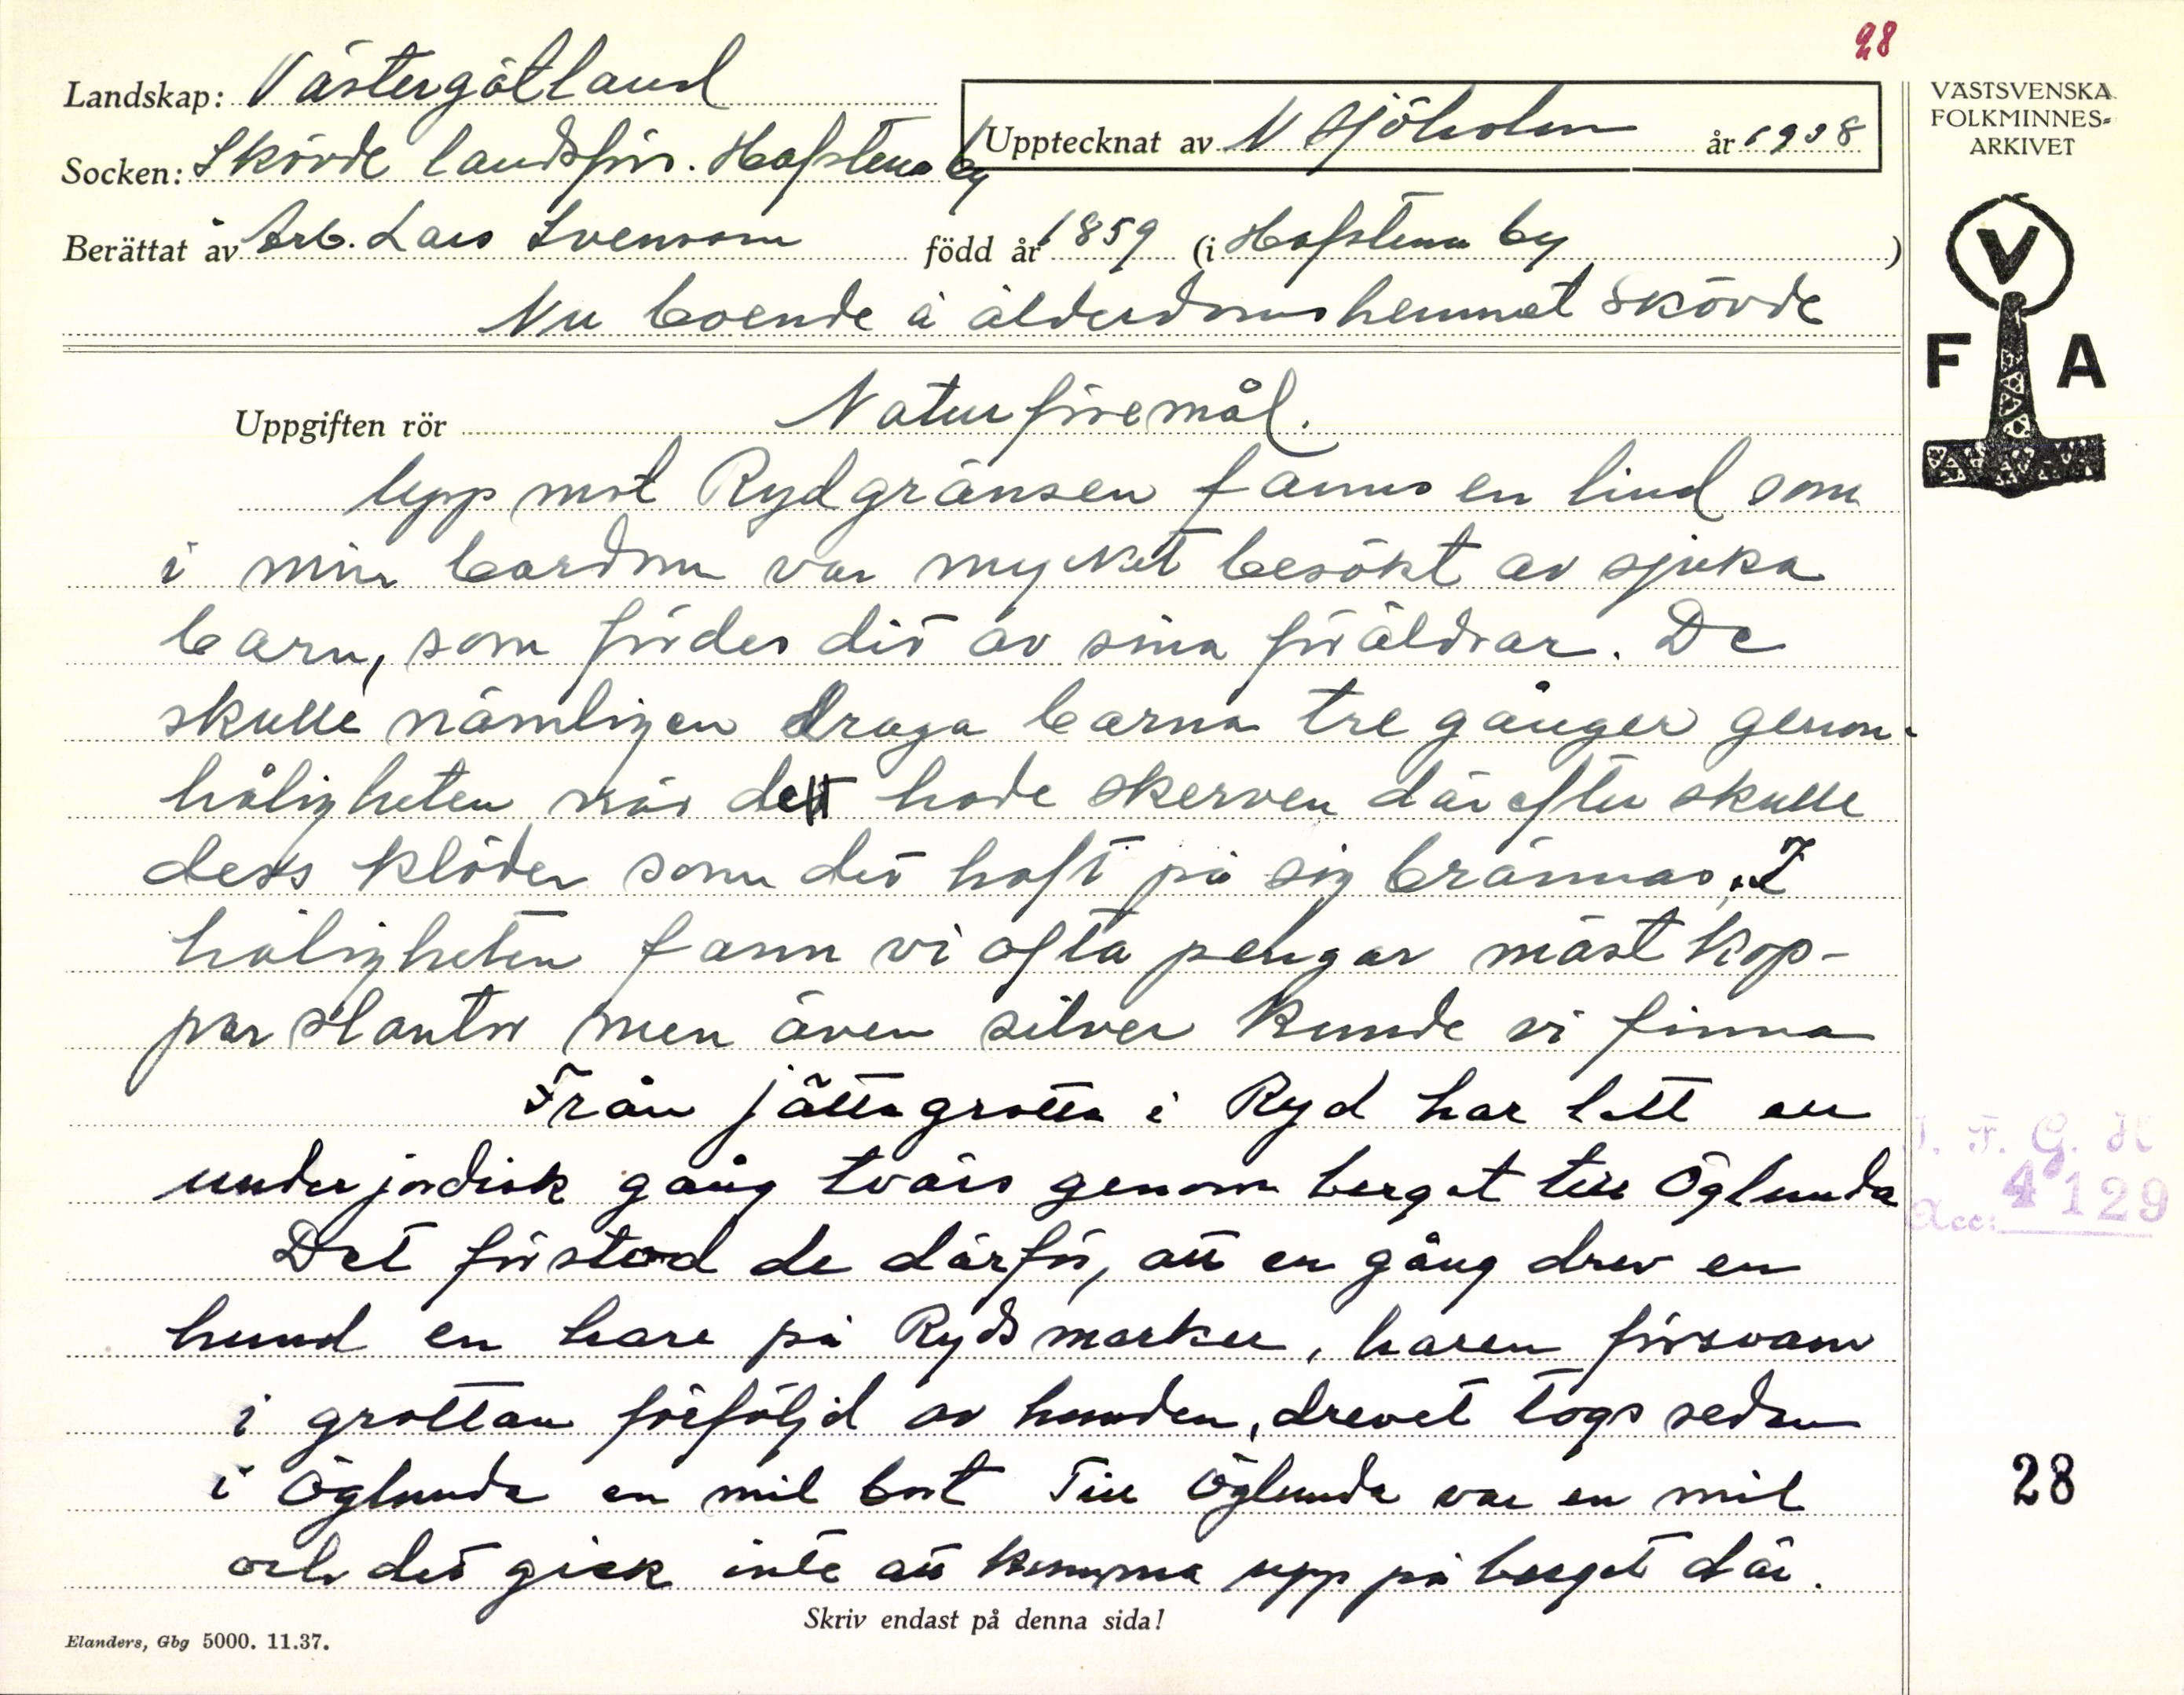 28
Landskap: Västergötland
Upptecknat av N Sjöholm år 1938
VÄSTSVENSKA
FOLKMINNES-
ARKIVET
Socken: Skövde landsförs. Hafstena by
Berättat av Arb. Lars Svensson född år 1859 (i Hafstena by)
Nu boende å ålderdomshemmet Skövde
V
F A
Uppgiften rör Naturföremål.
Upp mot Rydgränsen fanns en lind som
i min bardom var mycket besökt av sjuka
barn, som fördes dit av sina föräldrar. De
skulle nämligen draga barna tre gånger genom
håligheten när dett hade skerven därefter skulle
dess kläder som det haft på sig brännas. I
håligheten fann vi ofta pengar mäst kop-
par slantar men även silver kunde vi finna
Från jättagrotta i Ryd har lett en
underjordisk gång tvärs genom berget till Öglunda
Det förstod de därför, att en gång drev en
hund en hare på Ryds marker, haren försvann
i grottan förföljd av hunden, drevet togs sedan
i Öglunda en mil bort Till Öglunda var en mil
och det gick inte att komma upp på berget där.
I. F. G. H
Acc: 4129
28
Skriv endast på denna sida!
Elanders, Gbg 5000. 11.37.